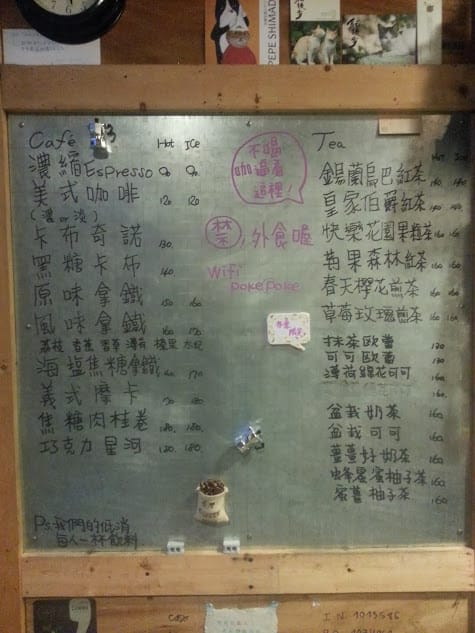 PEPE SHIMADA
Café
Hot Ice
濃縮Espresso 90. 90.
美式咖啡 120 120
(濃 or 淡)
卡布奇諾 130.
黑糖卡布 140
原味拿鐵 150 160
風味拿鐵 160 170
海塩焦糖拿鐵 160 170
義式摩卡 180
焦糖肉桂卷 180. 180
巧克力星河 180. 180.
Ps.我們的低消
每人一杯飲料
不喝
咖啡看
這裡!
禁,外食喔
Wifi
pokepoke
Tea
Hot Ice
錫蘭烏巴紅茶 140 140
皇家伯爵紅茶 140 140
快樂花園果粒茶 160 160
莓果森林紅茶 160 160
春天櫻花煎茶 160 160
草莓玫瑰煎茶 160 160
抹茶歐蕾 130
可可歐蕾 130
薄荷綠花可可 160.
盆栽奶茶 160
盆栽可可 160
薑薑好奶茶 160
蜂蜜柚子茶 160
蜜薑柚子茶 160